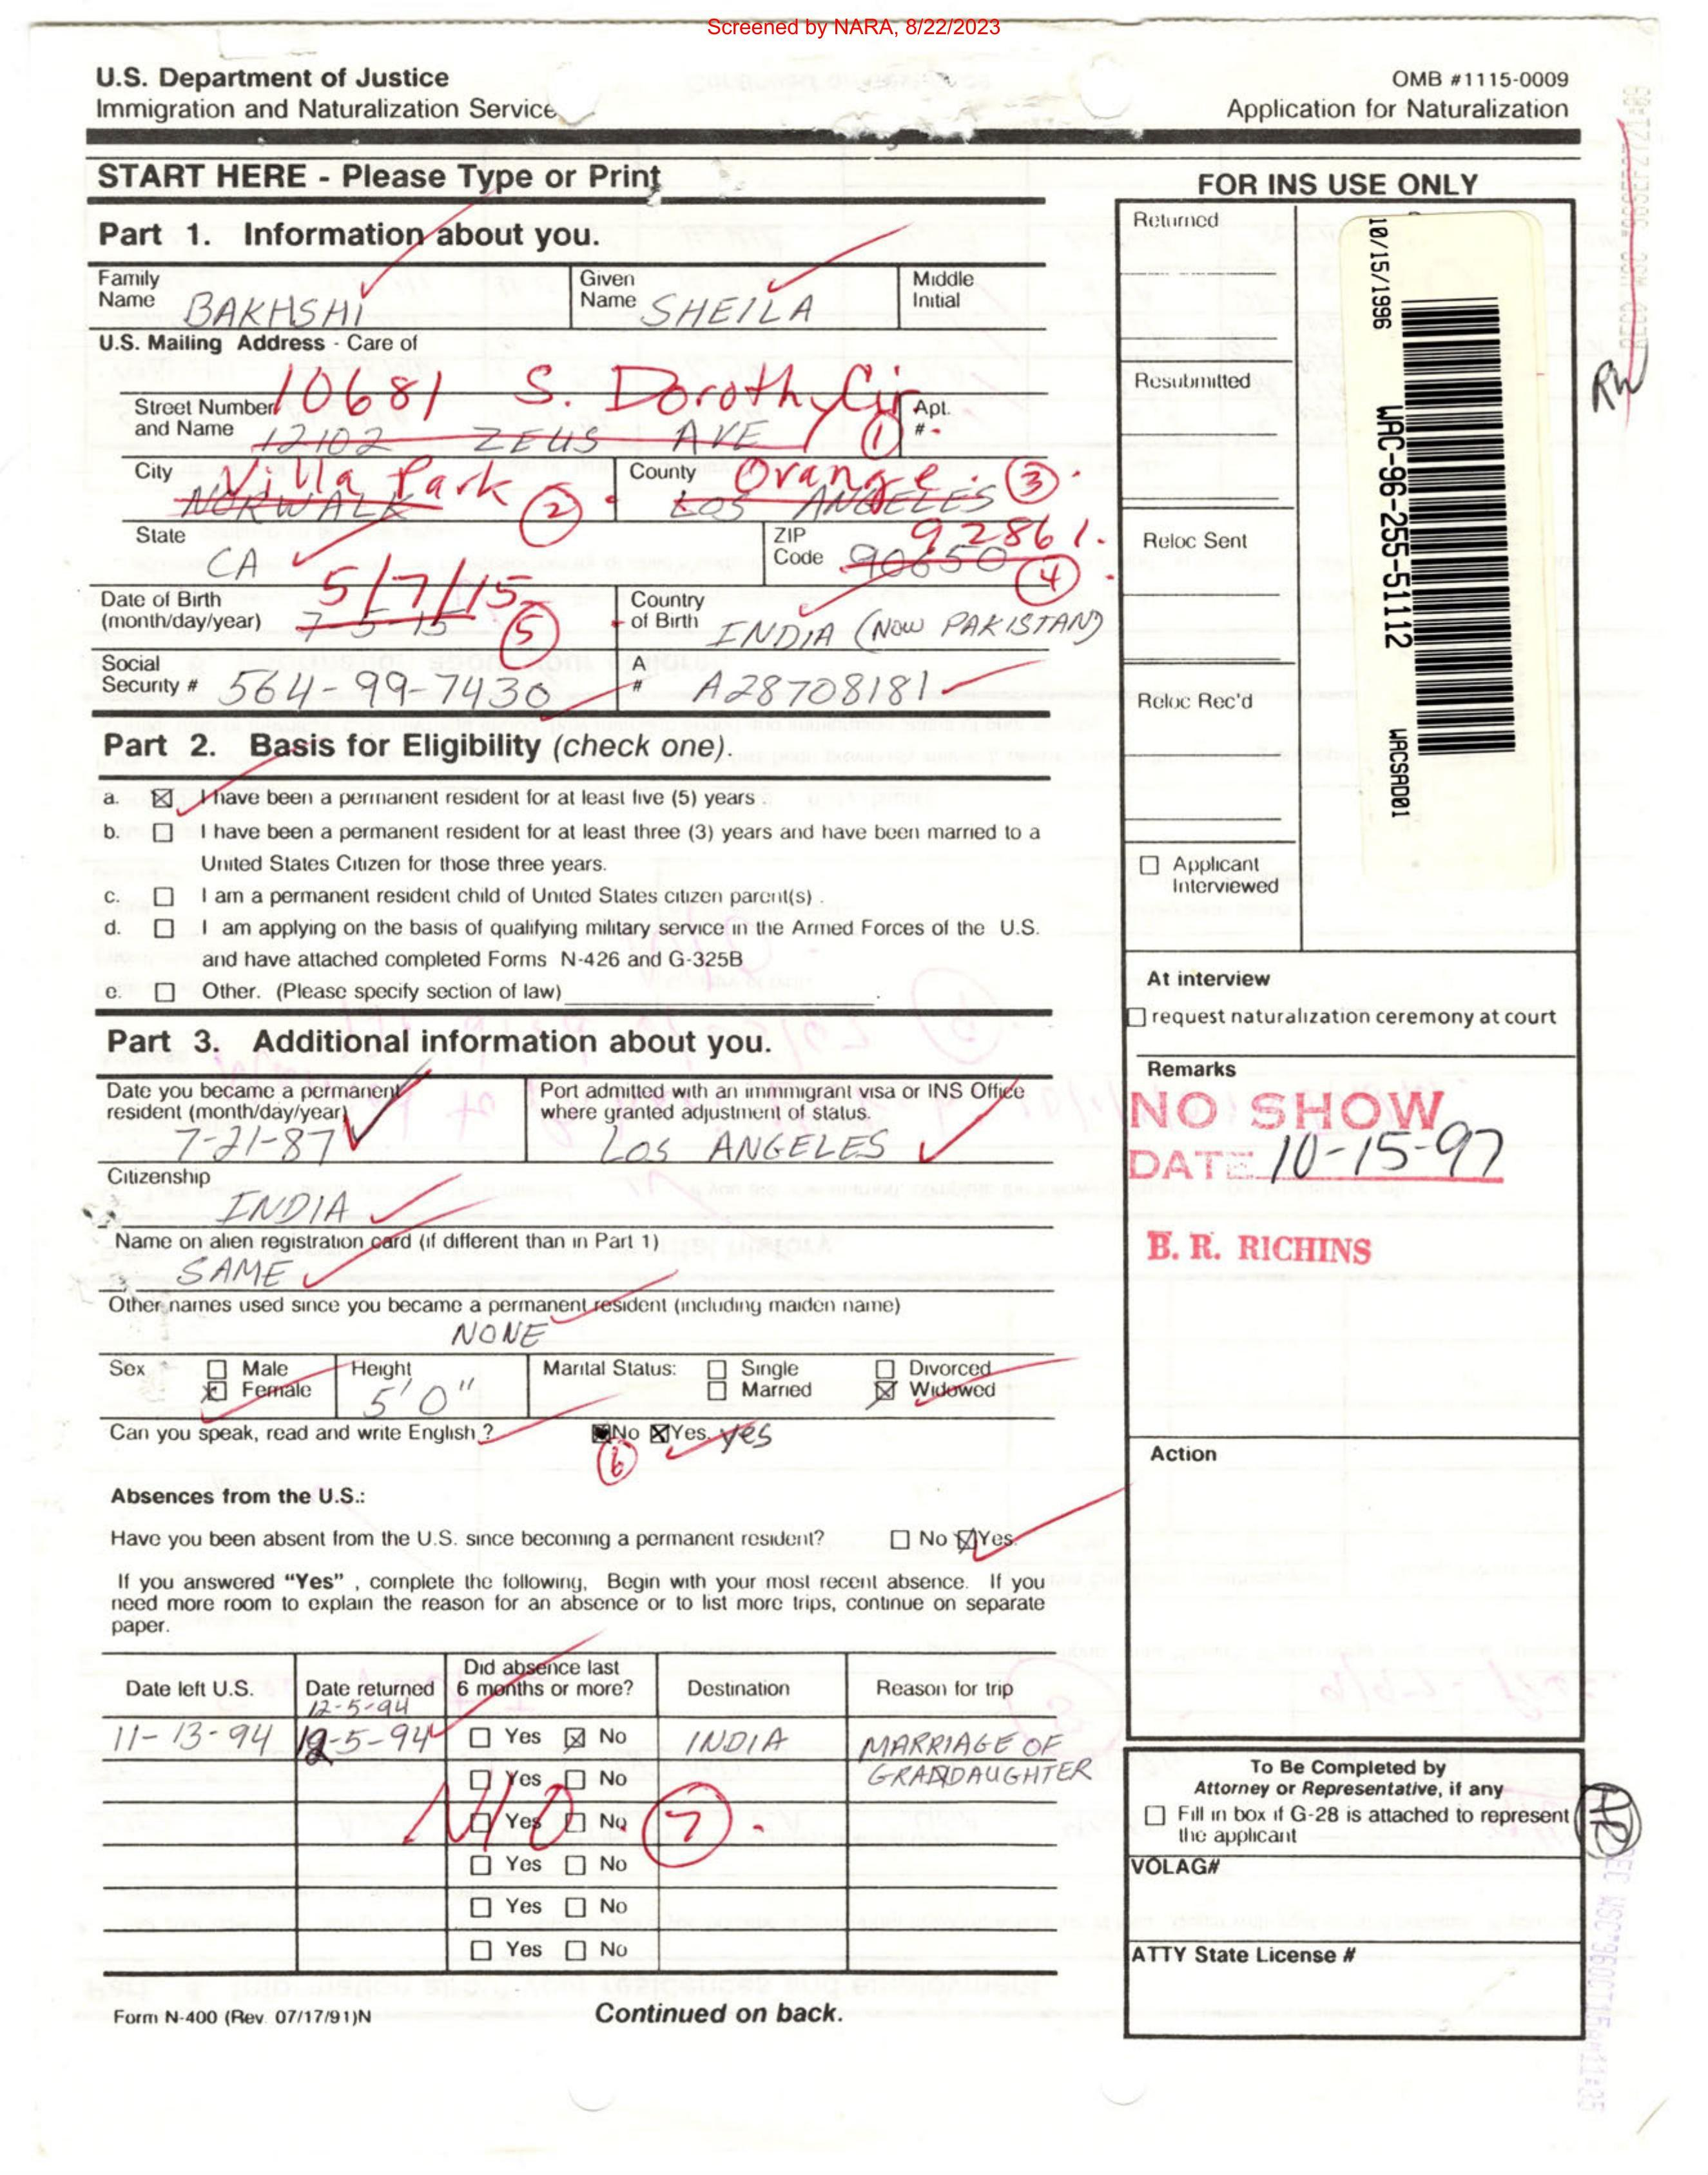 Screened by NARA, 8/22/2023
U.S. Department of Justice
Immigration and Naturalization Service
OMB #1115-0009
Application for Naturalization
START HERE - Please Type or Print
Part 1. Information about you.
Family Name BAKHSHI
Given Name SHEILA
Middle Initial
U.S. Mailing Address - Care of
10681 S. Dorothy Cir
Street Number and Name 12102 ZEUS AVE 1
Apt. #
City Villa Park NORWALK 2
County Orange LOS ANGELES 3
State CA
ZIP Code 92861 90650 4
Date of Birth (month/day/year) 5/7/15 7-5-15 5
Country of Birth INDIA (NOW PAKISTAN)
Social Security # 564-99-7430
A # A28708181
Part 2. Basis for Eligibility (check one).
a. ☒ I have been a permanent resident for at least five (5) years .
b. ☐ I have been a permanent resident for at least three (3) years and have been married to a
United States Citizen for those three years.
c. ☐ I am a permanent resident child of United States citizen parent(s) .
d. ☐ I am applying on the basis of qualifying military service in the Armed Forces of the U.S.
and have attached completed Forms N-426 and G-325B
e. ☐ Other. (Please specify section of law)
Part 3. Additional information about you.
Date you became a permanent resident (month/day/year) 7-21-87
Port admitted with an immmigrant visa or INS Office where granted adjustment of status. LOS ANGELES
Citizenship
INDIA
Name on alien registration card (if different than in Part 1)
SAME
Other names used since you became a permanent resident (including maiden name)
NONE
Sex ☐ Male ☒ Female
Height 5' 0"
Marital Status: ☐ Single ☐ Married ☐ Divorced ☒ Widowed
Can you speak, read and write English ? No ☒ Yes. yes
6
Absences from the U.S.:
Have you been absent from the U.S. since becoming a permanent resident? ☐ No ☒ Yes.
If you answered “Yes” , complete the following, Begin with your most recent absence. If you
need more room to explain the reason for an absence or to list more trips, continue on separate
paper.
Date left U.S. Date returned Did absence last 6 months or more? Destination Reason for trip
12-5-94
11-13-94 12-5-94 ☐ Yes ☒ No INDIA MARRIAGE OF
GRANDDAUGHTER
☐ Yes ☐ No
☐ Yes ☐ No 7
☐ Yes ☐ No
☐ Yes ☐ No
☐ Yes ☐ No
Form N-400 (Rev. 07/17/91)N
Continued on back.
FOR INS USE ONLY
Returned
Resubmitted
Reloc Sent
Reloc Rec'd
10/15/1996 WAC-96-255-51112 WACSAD01
☐ Applicant Interviewed
At interview
☐ request naturalization ceremony at court
Remarks
NO SHOW
DATE 10-15-97
B. R. RICHINS
Action
To Be Completed by
Attorney or Representative, if any
☐ Fill in box if G-28 is attached to represent
the applicant
VOLAG#
ATTY State License #